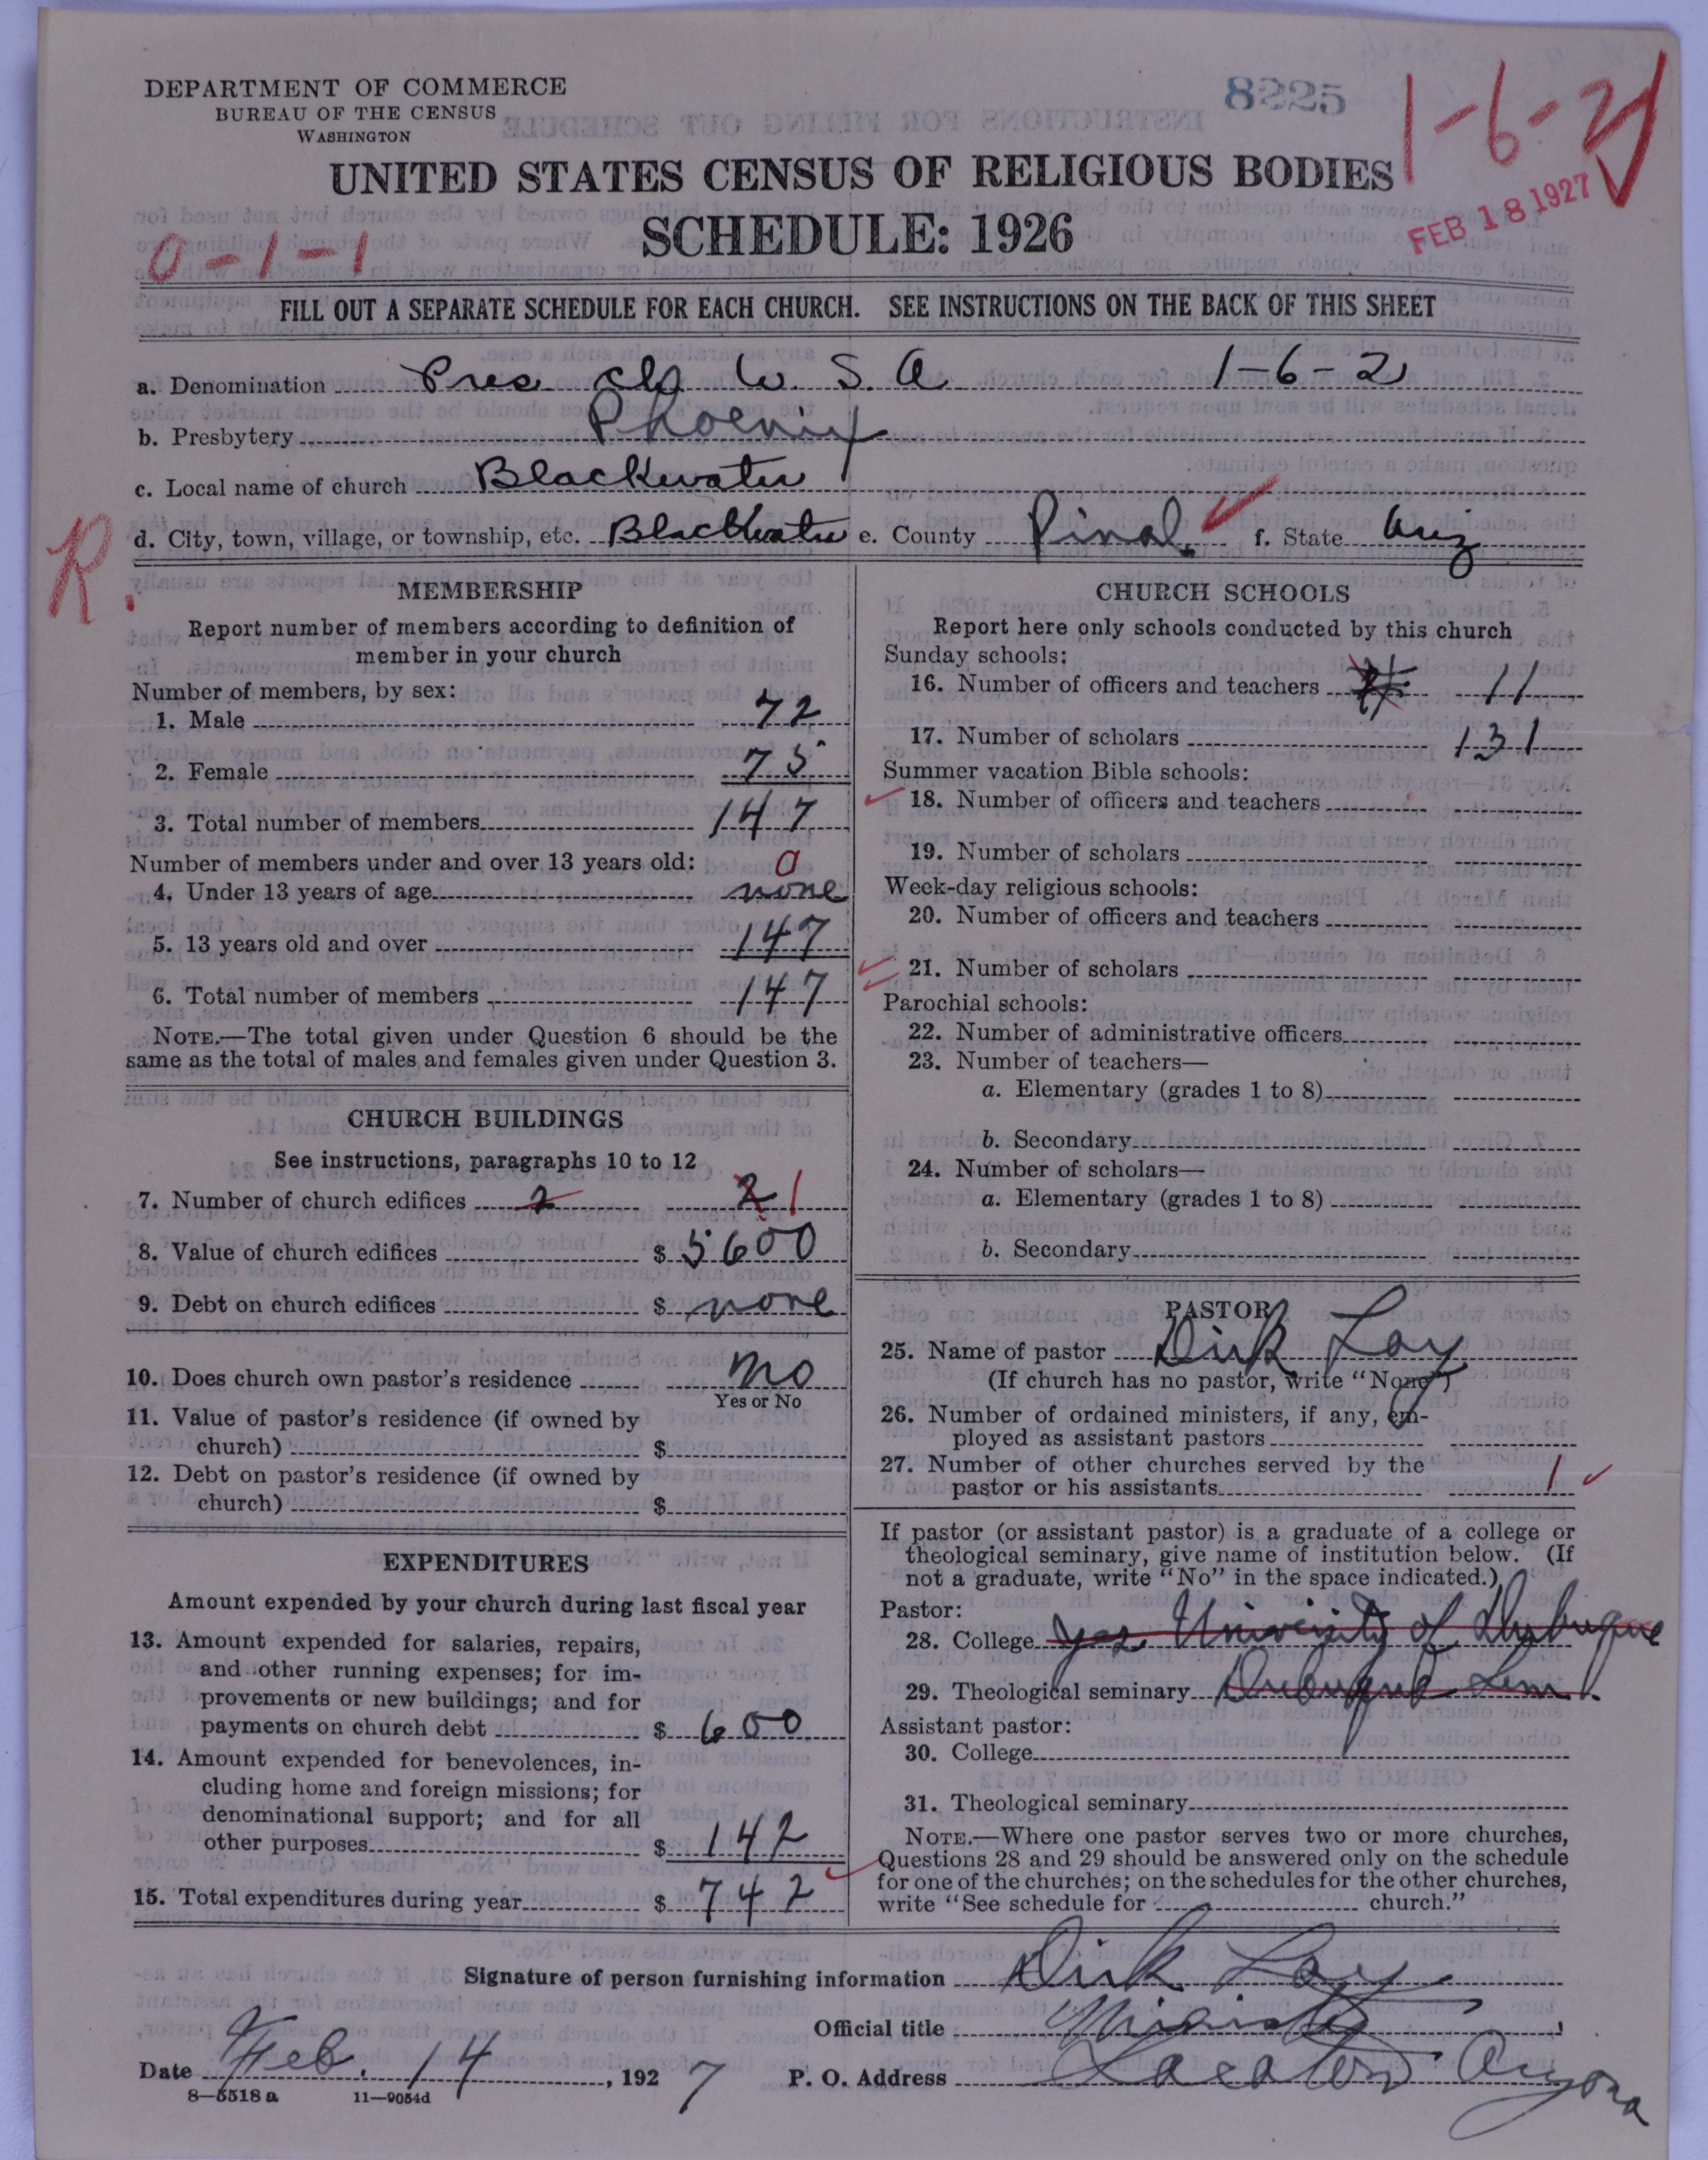 DEPARTMENT OF COMMERCE
BUREAU OF THE CENSUS
WASHINGTON
8225
1-6-2
UNITED STATES CENSUS OF RELIGIOUS BODIES
SCHEDULE: 1926
FEB 18 1927
0-1-1
FILL OUT A SEPARATE SCHEDULE FOR EACH CHURCH. SEE INSTRUCTIONS ON THE BACK OF THIS SHEET
a. Denomination Pres ch U. S. A 1-6-2
b. Presbytery Phoenix
c. Local name of church Blackwater
d. City, town, village, or township, etc. Blackwater e. County Pinal f. State Ariz
R.
MEMBERSHIP
Report number of members according to definition of
member in your church
Number of members, by sex:
1. Male 72
2. Female 75
3. Total number of members 147
Number of members under and over 13 years old: 0
4. Under 13 years of age none
5. 13 years old and over 147
6. Total number of members 147
NOTE.—The total given under Question 6 should be the
same as the total of males and females given under Question 3.
CHURCH BUILDINGS
See instructions, paragraphs 10 to 12
7. Number of church edifices 2 2 1
8. Value of church edifices $ 5600
9. Debt on church edifices $ none
10. Does church own pastor's residence no
Yes or No
11. Value of pastor's residence (if owned by
church) $
12. Debt on pastor's residence (if owned by
church) $
EXPENDITURES
Amount expended by your church during last fiscal year
13. Amount expended for salaries, repairs,
and other running expenses; for im-
provements or new buildings; and for
payments on church debt $ 600
14. Amount expended for benevolences, in-
cluding home and foreign missions; for
denominational support; and for all
other purposes $ 142
15. Total expenditures during year $ 742
CHURCH SCHOOLS
Report here only schools conducted by this church
Sunday schools:
16. Number of officers and teachers 11
17. Number of scholars 131
Summer vacation Bible schools:
18. Number of officers and teachers
19. Number of scholars
Week-day religious schools:
20. Number of officers and teachers
21. Number of scholars
Parochial schools:
22. Number of administrative officers
23. Number of teachers—
a. Elementary (grades 1 to 8)
b. Secondary
24. Number of scholars—
a. Elementary (grades 1 to 8)
b. Secondary
PASTOR
25. Name of pastor Dirk Lay
(If church has no pastor, write "None")
26. Number of ordained ministers, if any, em-
ployed as assistant pastors
27. Number of other churches served by the
pastor or his assistants 1
If pastor (or assistant pastor) is a graduate of a college or
theological seminary, give name of institution below. (If
not a graduate, write "No" in the space indicated.)
Pastor:
28. College yes University of Dubuque
29. Theological seminary Dubuque Sem.
Assistant pastor:
30. College
31. Theological seminary
NOTE.—Where one pastor serves two or more churches,
Questions 28 and 29 should be answered only on the schedule
for one of the churches; on the schedules for the other churches,
write "See schedule for church."
Signature of person furnishing information Dirk Lay
Official title Minister
Date Feb. 14, 1927 P. O. Address Sacaton Arizona
8—5518 a 11—9054d